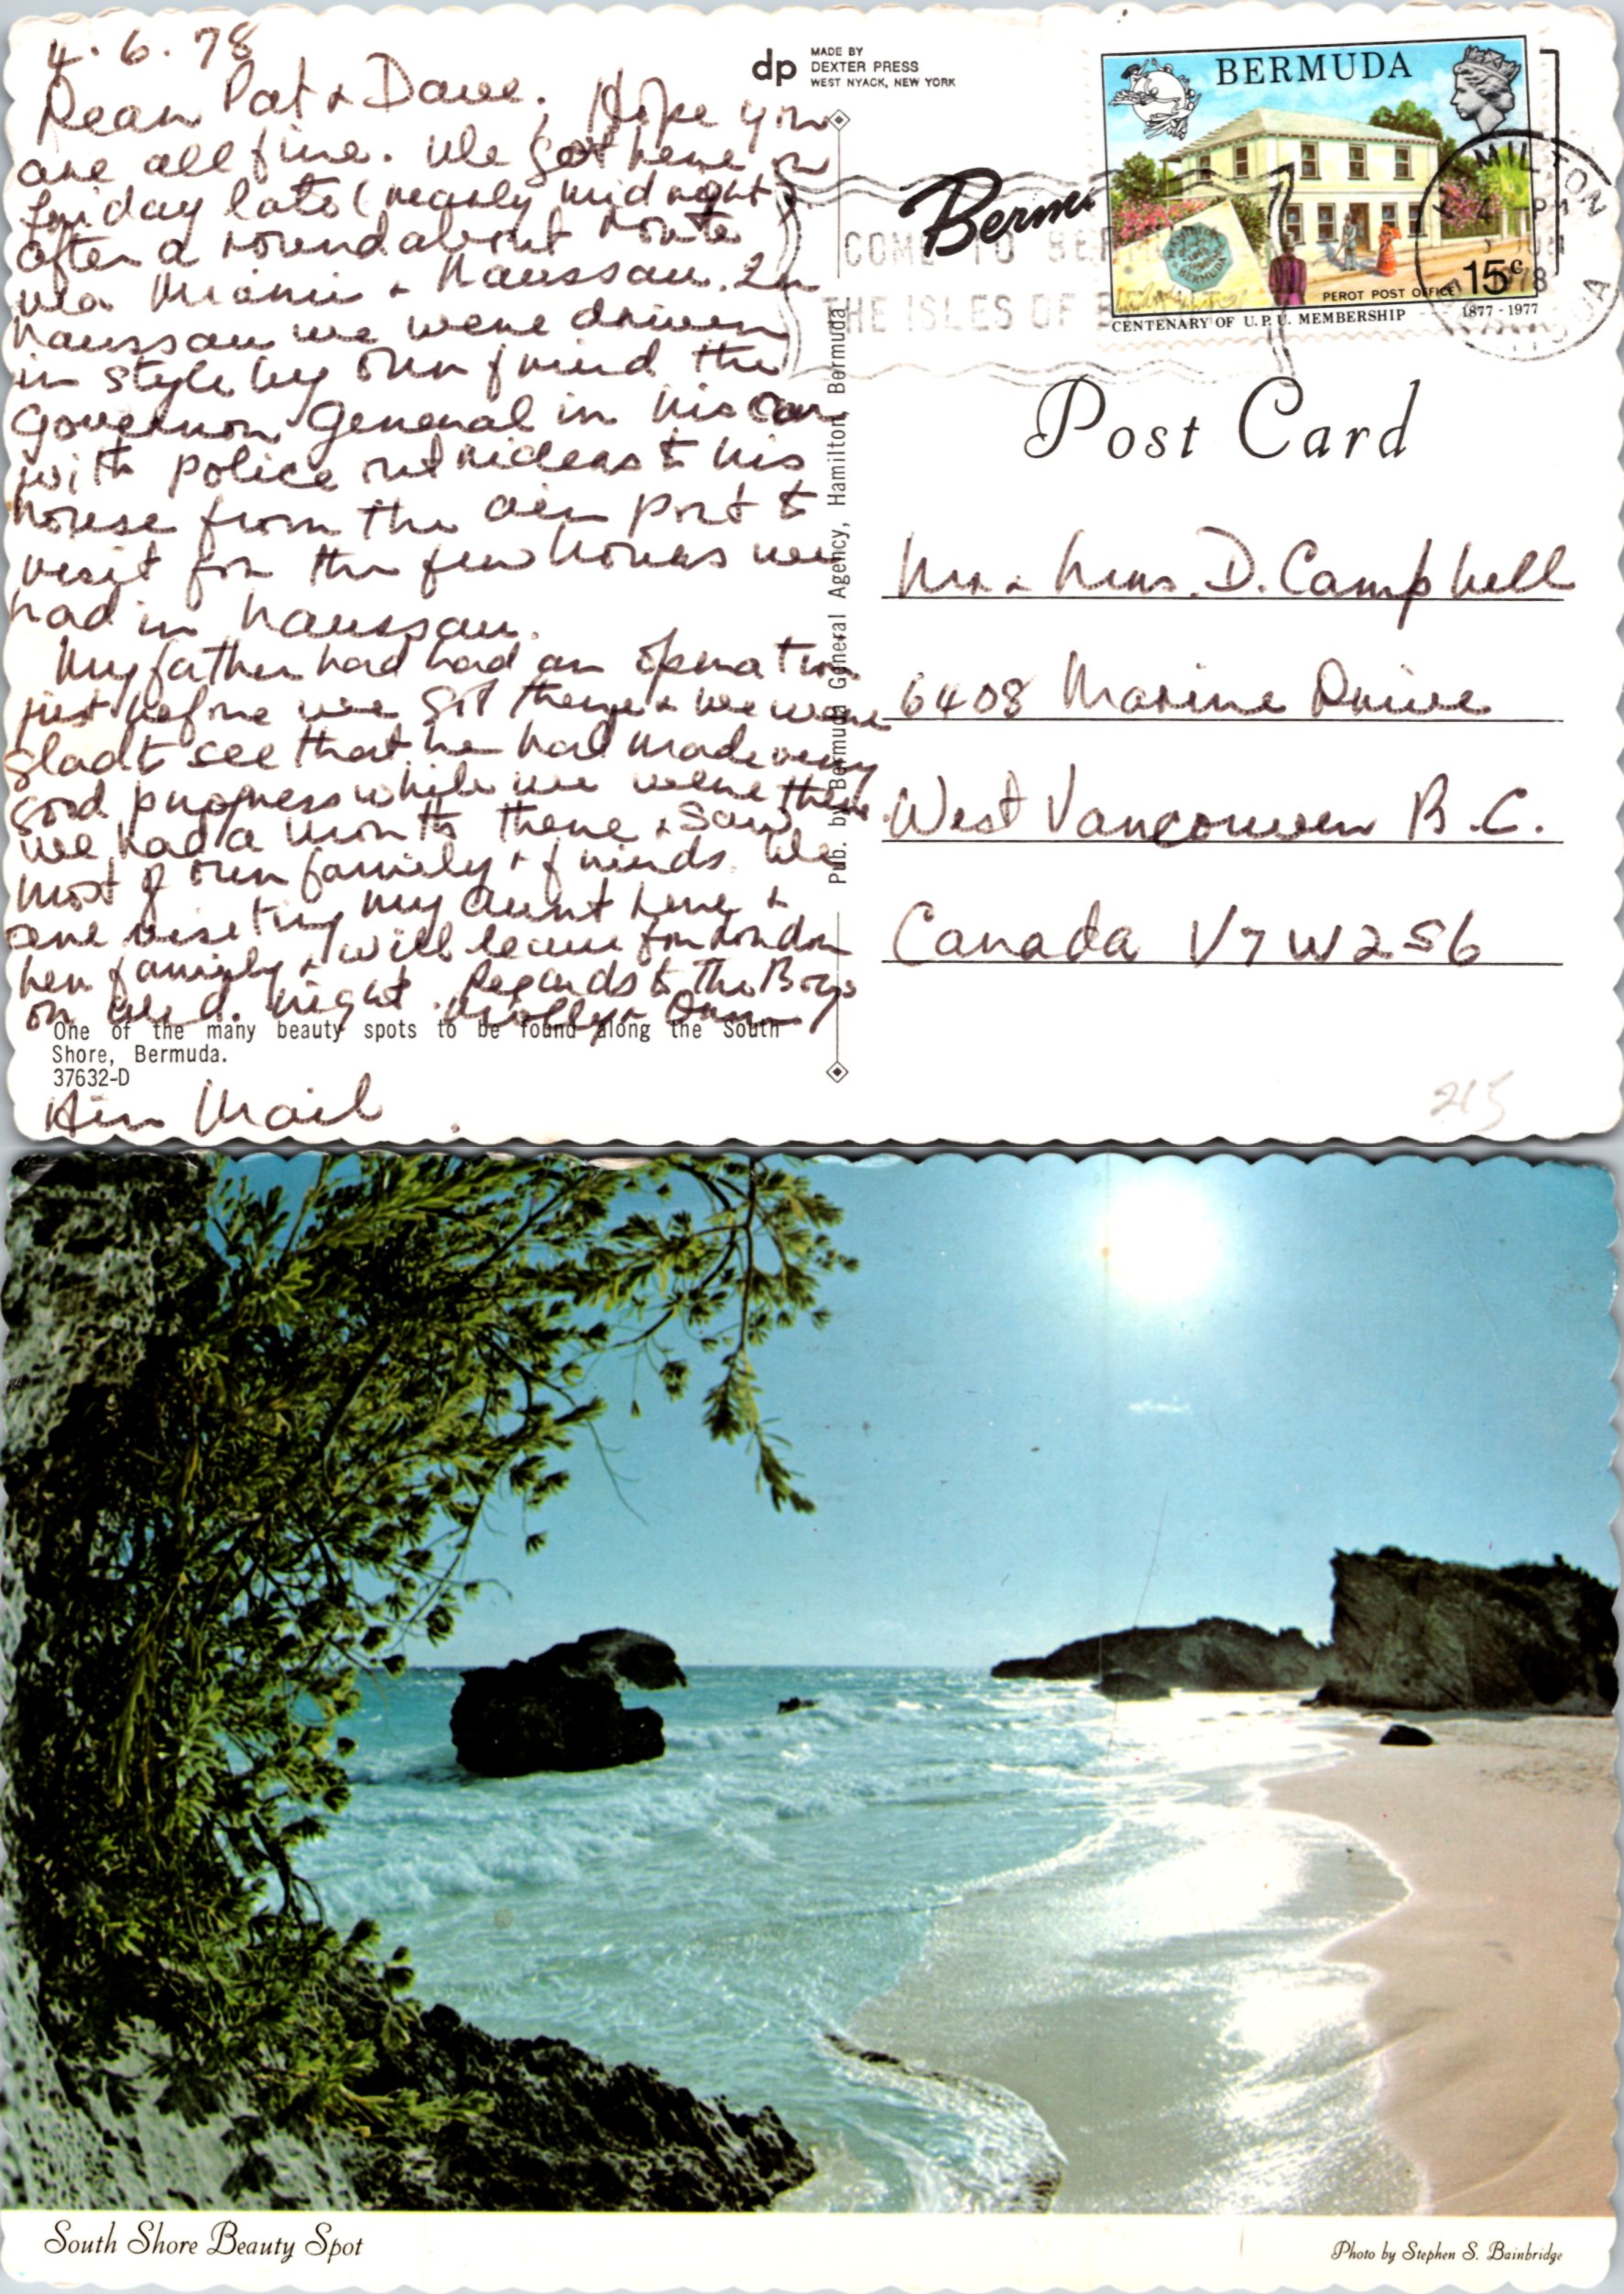 4.6.78
Dear Pat & Dave, Hope you
are all fine. We got here on
Friday late (nearly midnight)
after a roundabout route
via Miami & Naussau. In
Naussau we were driven
in style by our friend the
Governor General in his car
with police outriders to his
house from the air port to
visit for the few hours we
had in Naussau.
My father had had an operation
just before we got there & we were
glad to see that he had made very
good progress while we were there.
we had a month there & saw
most of our family & friends. We
are visiting my aunt here &
her family & will leave for London
on Wed. night. Regards to the Boys
Molly &
One of the many beauty spots to be found along the South
Shore, Bermuda.
37632-D
Air Mail
dp
MADE BY
DEXTER PRESS
WEST NYACK, NEW YORK
Pub. by Bermuda General Agency, Hamilton, Bermuda
BERMUDA
PEROT POST OFFICE
15c
CENTENARY OF U.P.U. MEMBERSHIP 1877-1977
COME TO
THE ISLES OF
Post Card
Mr. & Mrs. D. Campbell
6408 Marine Drive
West Vancouver B.C.
Canada V7W2S6
215
South Shore Beauty Spot
Photo by Stephen S. Bainbridge